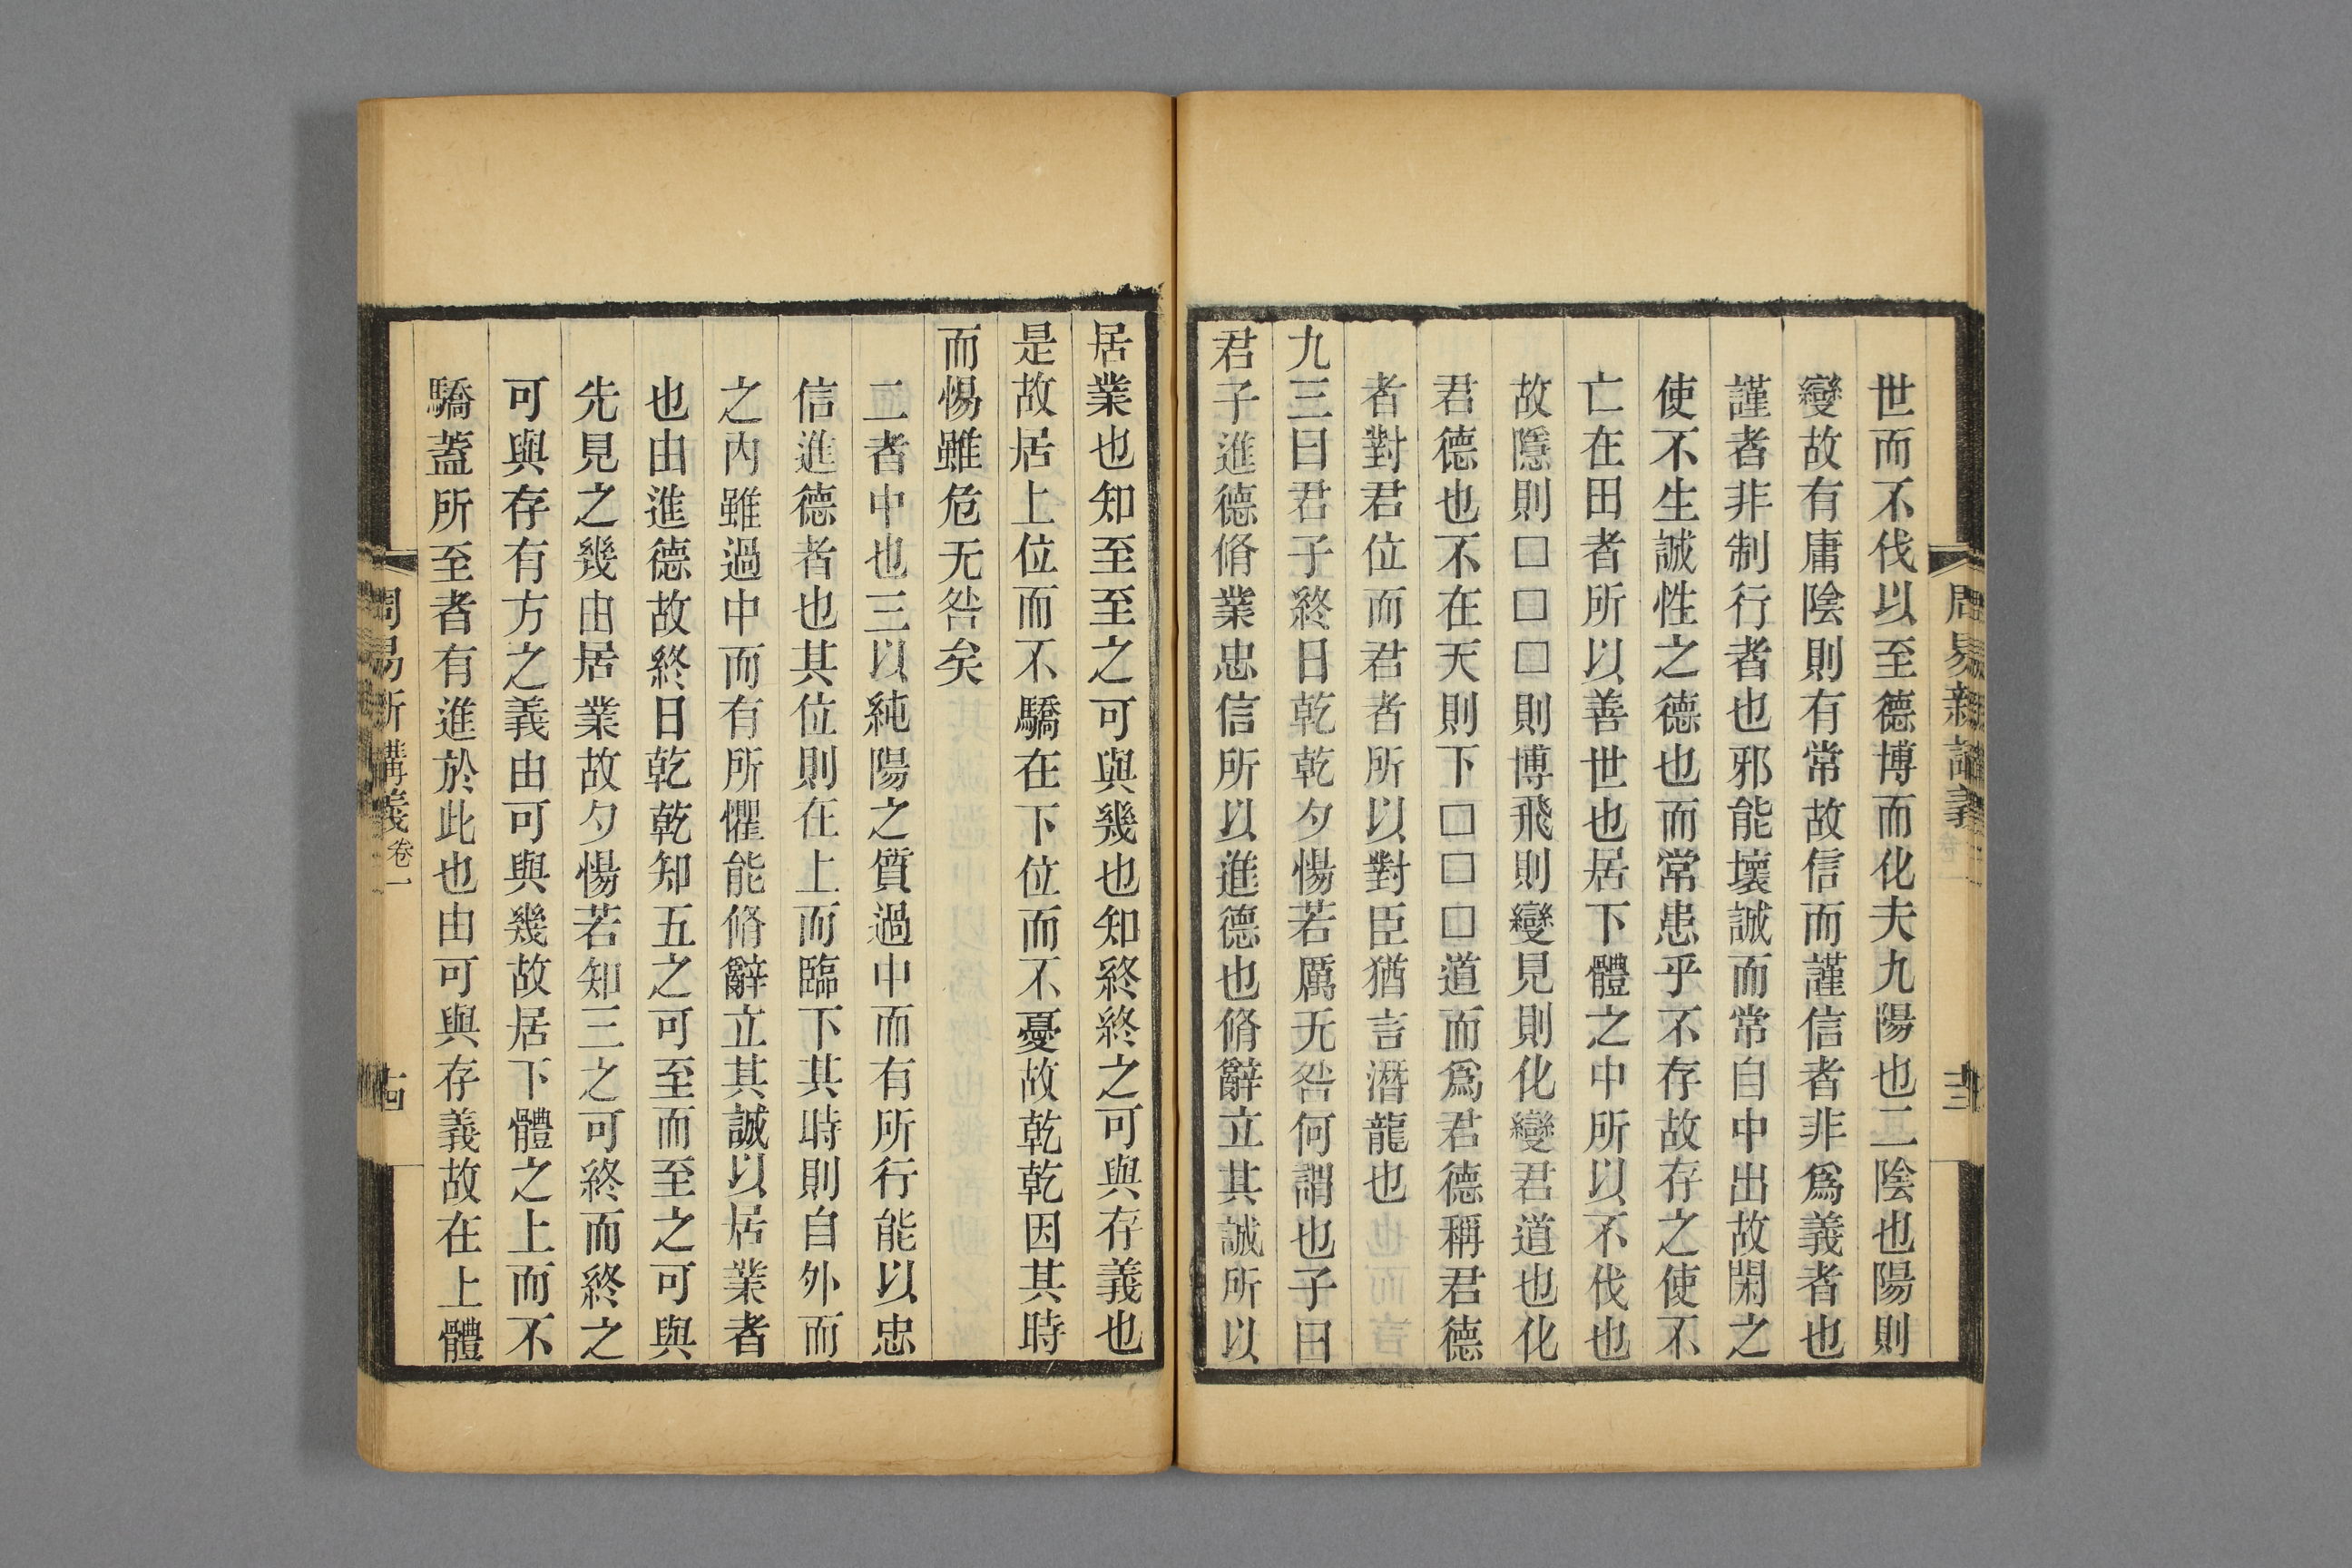 周易新講義
世而不伐以至德博而化夫九陽也二陰也陽則
變故有庸陰則有常故信而謹信者非爲義者也
謹者非制行者也邪能壞誠而常自中出故閑之
使不生誠性之德也而常患乎不存故存之使不
亡在田者所以善世也居下體之中所以不伐也
故隱則□□□則博飛則變見則化變君道也化
君德也不在天則下□□□道而爲君德稱君德
者對君位而君者所以對臣猶言潛龍也
九三曰君子終日乾乾夕惕若厲无咎何謂也子曰
君子進德脩業忠信所以進德也脩辭立其誠所以
居業也知至至之可與幾也知終終之可與存義也
是故居上位而不驕在下位而不憂故乾乾因其時
而惕雖危无咎矣
二者中也三以純陽之質過中而有所行能以忠
信進德者也其位則在上而臨下其時則自外而
之內雖過中而有所懼能脩辭立其誠以居業者
也由進德故終日乾乾知五之可至而至之可與
先見之幾由居業故夕惕若知三之可終而終之
可與存有方之義由可與幾故居下體之上而不
驕蓋所至者有進於此也由可與存義故在上體
周易新講義 卷一
十四